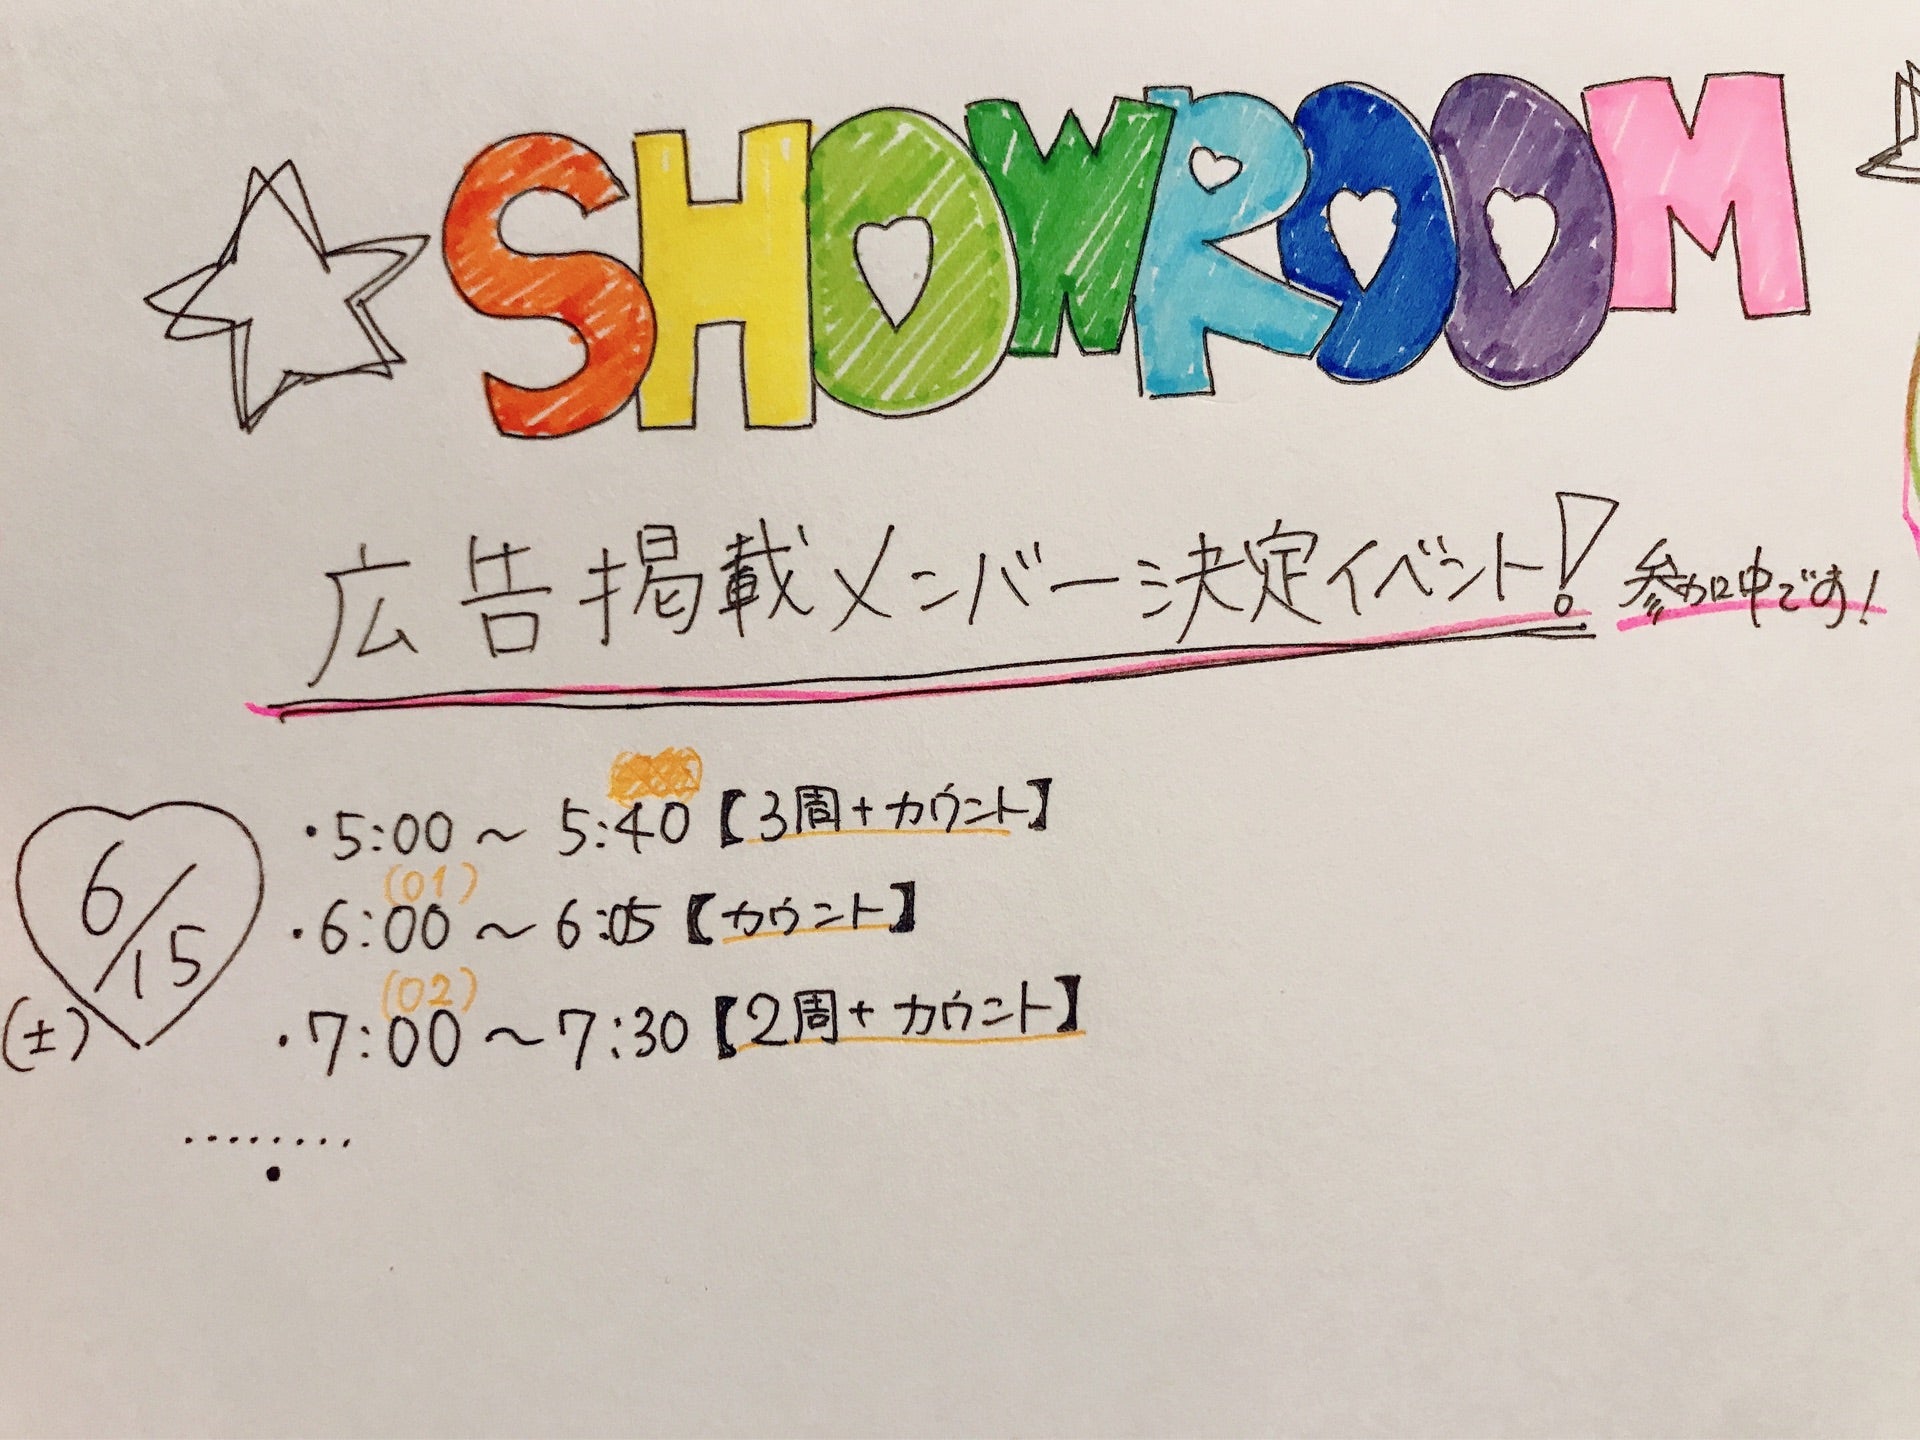 SHOWROOM
広告掲載メンバー決定イベント! 参加中です!
6/15
(土)
・5:00 ~ 5:40【3周+カウント】
(01)
・6:00 ~ 6:05【カウント】
(02)
・7:00 ~ 7:30【2周+カウント】